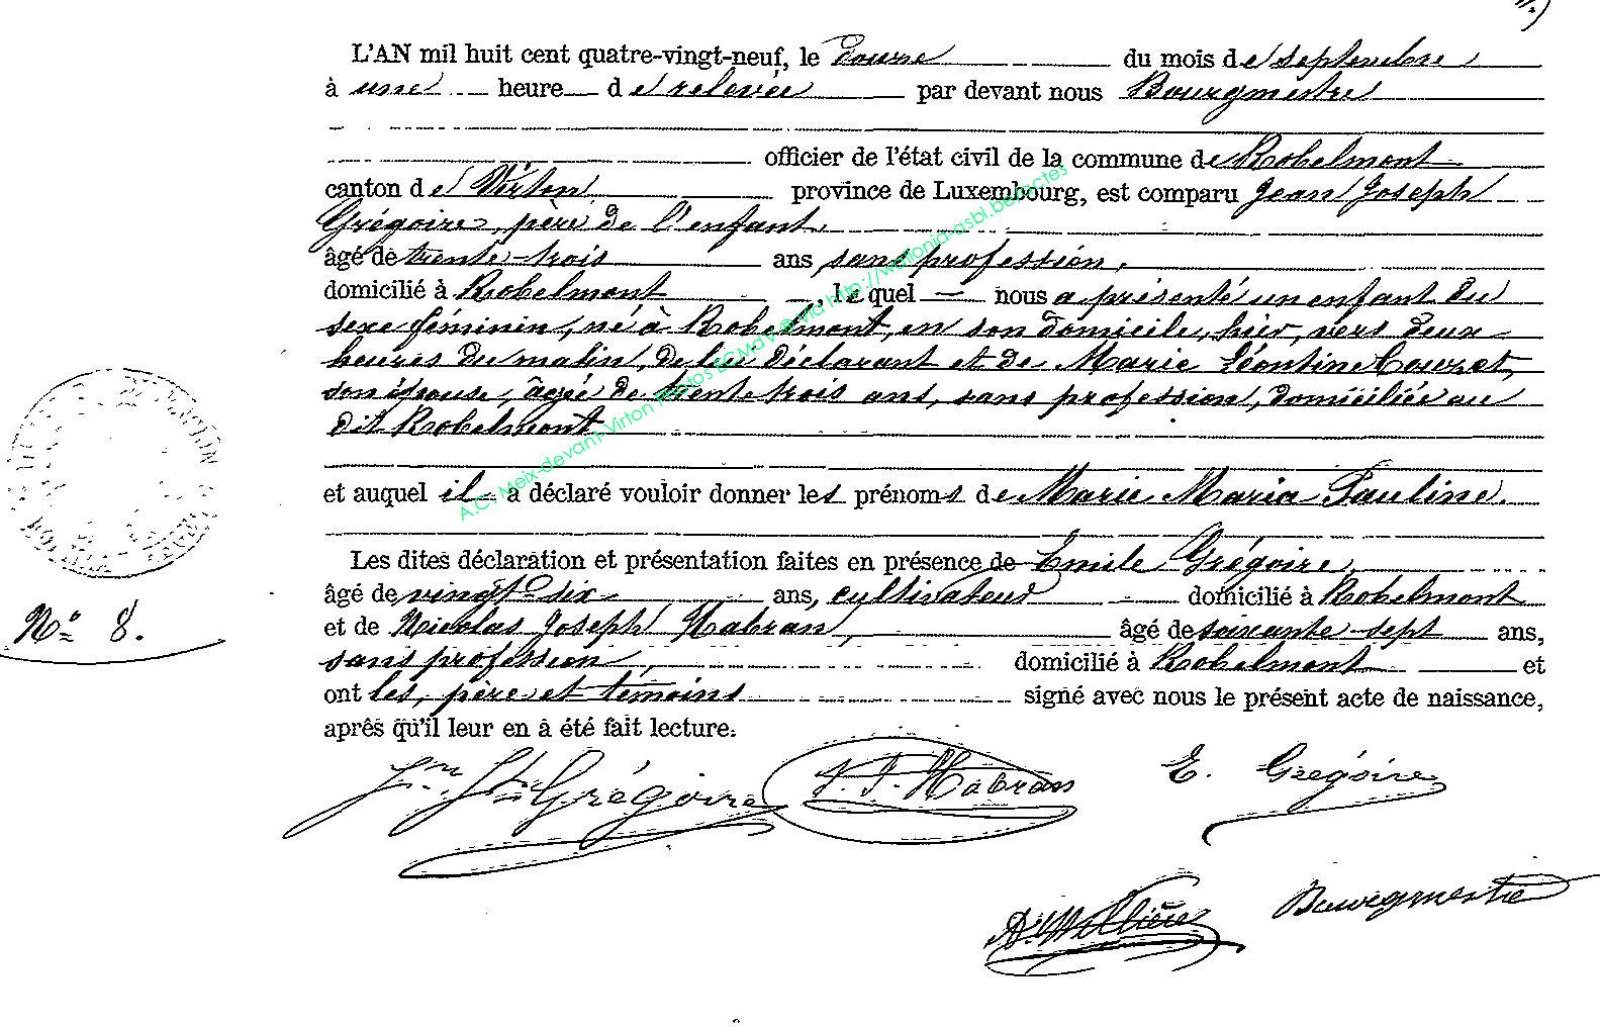 L'AN mil huit cent quatre-vingt-neuf, le douze du mois de septembre
à une heure de relevée par devant nous Bourgmestre
officier de l'état civil de la commune de Robelmont
canton de Virton province de Luxembourg, est comparu Jean Joseph
Grégoire, père de l'enfant,
âgé de trente-trois ans sans profession,
domicilié à Robelmont, lequel nous a présenté un enfant du
sexe féminin, né à Robelmont, en son domicile, hier, vers deux
heures du matin, de lui déclarant et de Marie Léontine
son épouse, âgée de trente trois ans, sans profession, domiciliée au
dit Robelmont
et auquel il a déclaré vouloir donner les prénoms de Marie Maria Pauline.
Les dites déclaration et présentation faites en présence de Emile Grégoire,
âgé de vingt-six ans, cultivateur domicilié à Robelmont
et de Nicolas Joseph Habran, âgé de soixante-sept ans,
sans profession, domicilié à Robelmont et
ont les, père et témoins signé avec nous le présent acte de naissance,
après qu'il leur en a été fait lecture.
N° 8.
Jn Jh Grégoire
Habran
E. Grégoire
Bourgmestre
A.C. Meix-devant-Virton Photos EGMdV © via http://wallonia-asbl.be/actes